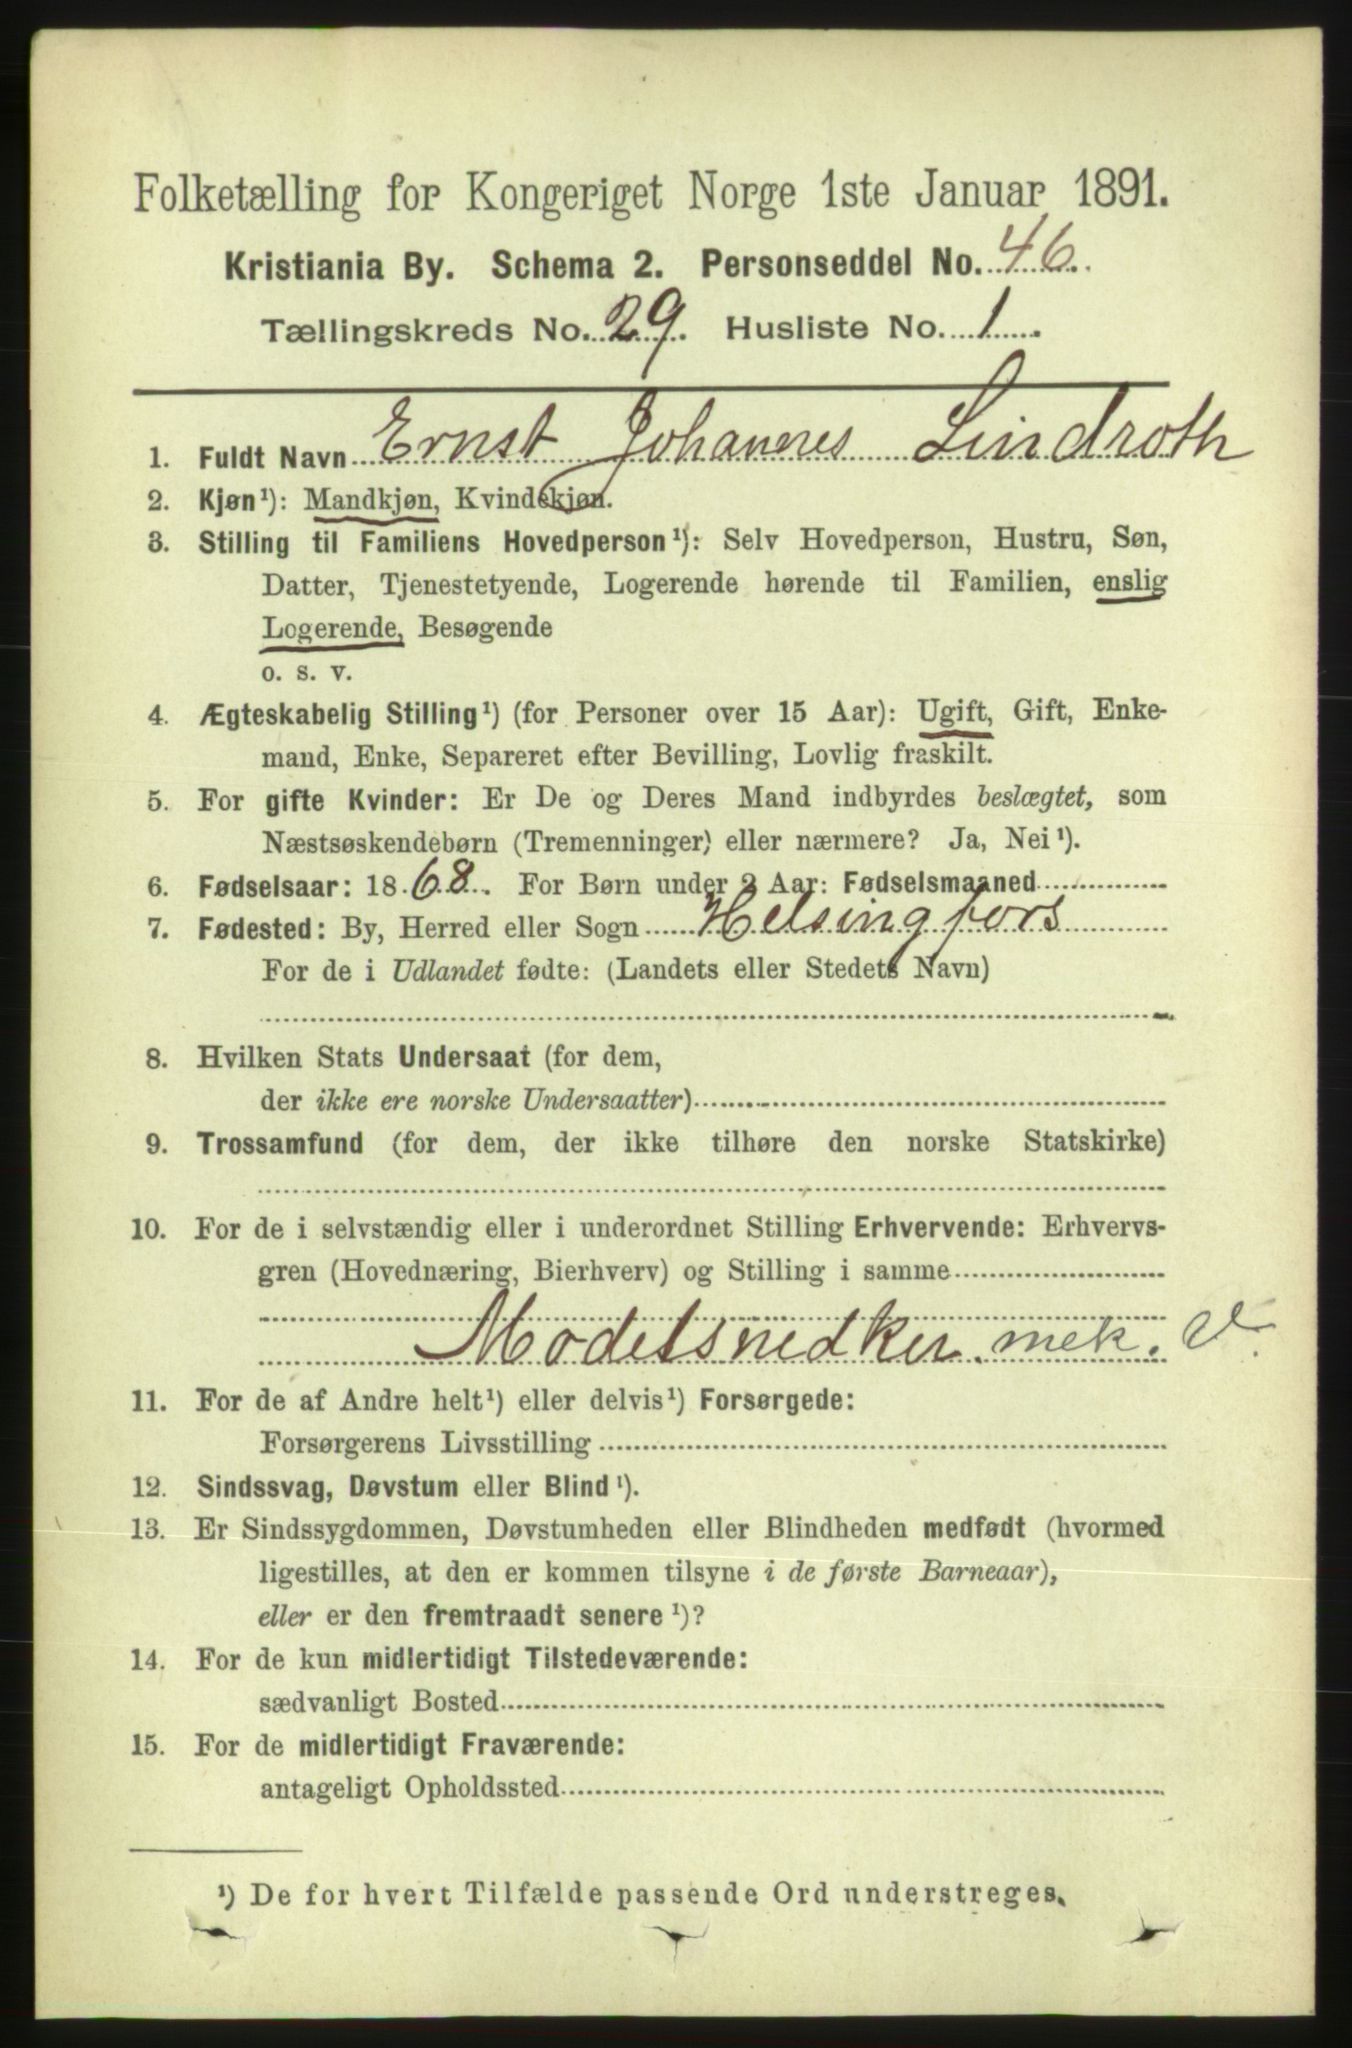 Folketælling for Kongeriget Norge 1ste Januar 1891.
Kristiania By. Schema 2. Personseddel No. 46.
Tællingskreds No. 29. Husliste No. 1.
1. Fuldt Navn Ernst Johannes Lindroth
2. Kjøn¹): Mandkjøn, Kvindekjøn.
3. Stilling til Familiens Hovedperson¹): Selv Hovedperson, Hustru, Søn,
Datter, Tjenestetyende, Logerende hørende til Familien, enslig
Logerende, Besøgende
o. s. v.
4. Ægteskabelig Stilling¹) (for Personer over 15 Aar): Ugift, Gift, Enke-
mand, Enke, Separeret efter Bevilling, Lovlig fraskilt.
5. For gifte Kvinder: Er De og Deres Mand indbyrdes beslægtet, som
Næstsøskendebørn (Tremenninger) eller nærmere? Ja, Nei¹).
6. Fødselsaar: 1868. For Børn under 2 Aar: Fødselsmaaned
7. Fødested: By, Herred eller Sogn Helsingfors
For de i Udlandet fødte: (Landets eller Stedets Navn)
8. Hvilken Stats Undersaat (for dem,
der ikke ere norske Undersaatter)
9. Trossamfund (for dem, der ikke tilhøre den norske Statskirke)
10. For de i selvstændig eller i underordnet Stilling Erhvervende: Erhvervs-
gren (Hovednæring, Bierhverv) og Stilling i samme
Modelsnedker. mek. V.
11. For de af Andre helt¹) eller delvis¹) Forsørgede:
Forsørgerens Livsstilling
12. Sindssvag, Døvstum eller Blind¹).
13. Er Sindssygdommen, Døvstumheden eller Blindheden medfødt (hvormed
ligestilles, at den er kommen tilsyne i de første Barneaar),
eller er den fremtraadt senere¹)?
14. For de kun midlertidigt Tilstedeværende:
sædvanligt Bosted
15. For de midlertidigt Fraværende:
antageligt Opholdssted
¹) De for hvert Tilfælde passende Ord understreges.